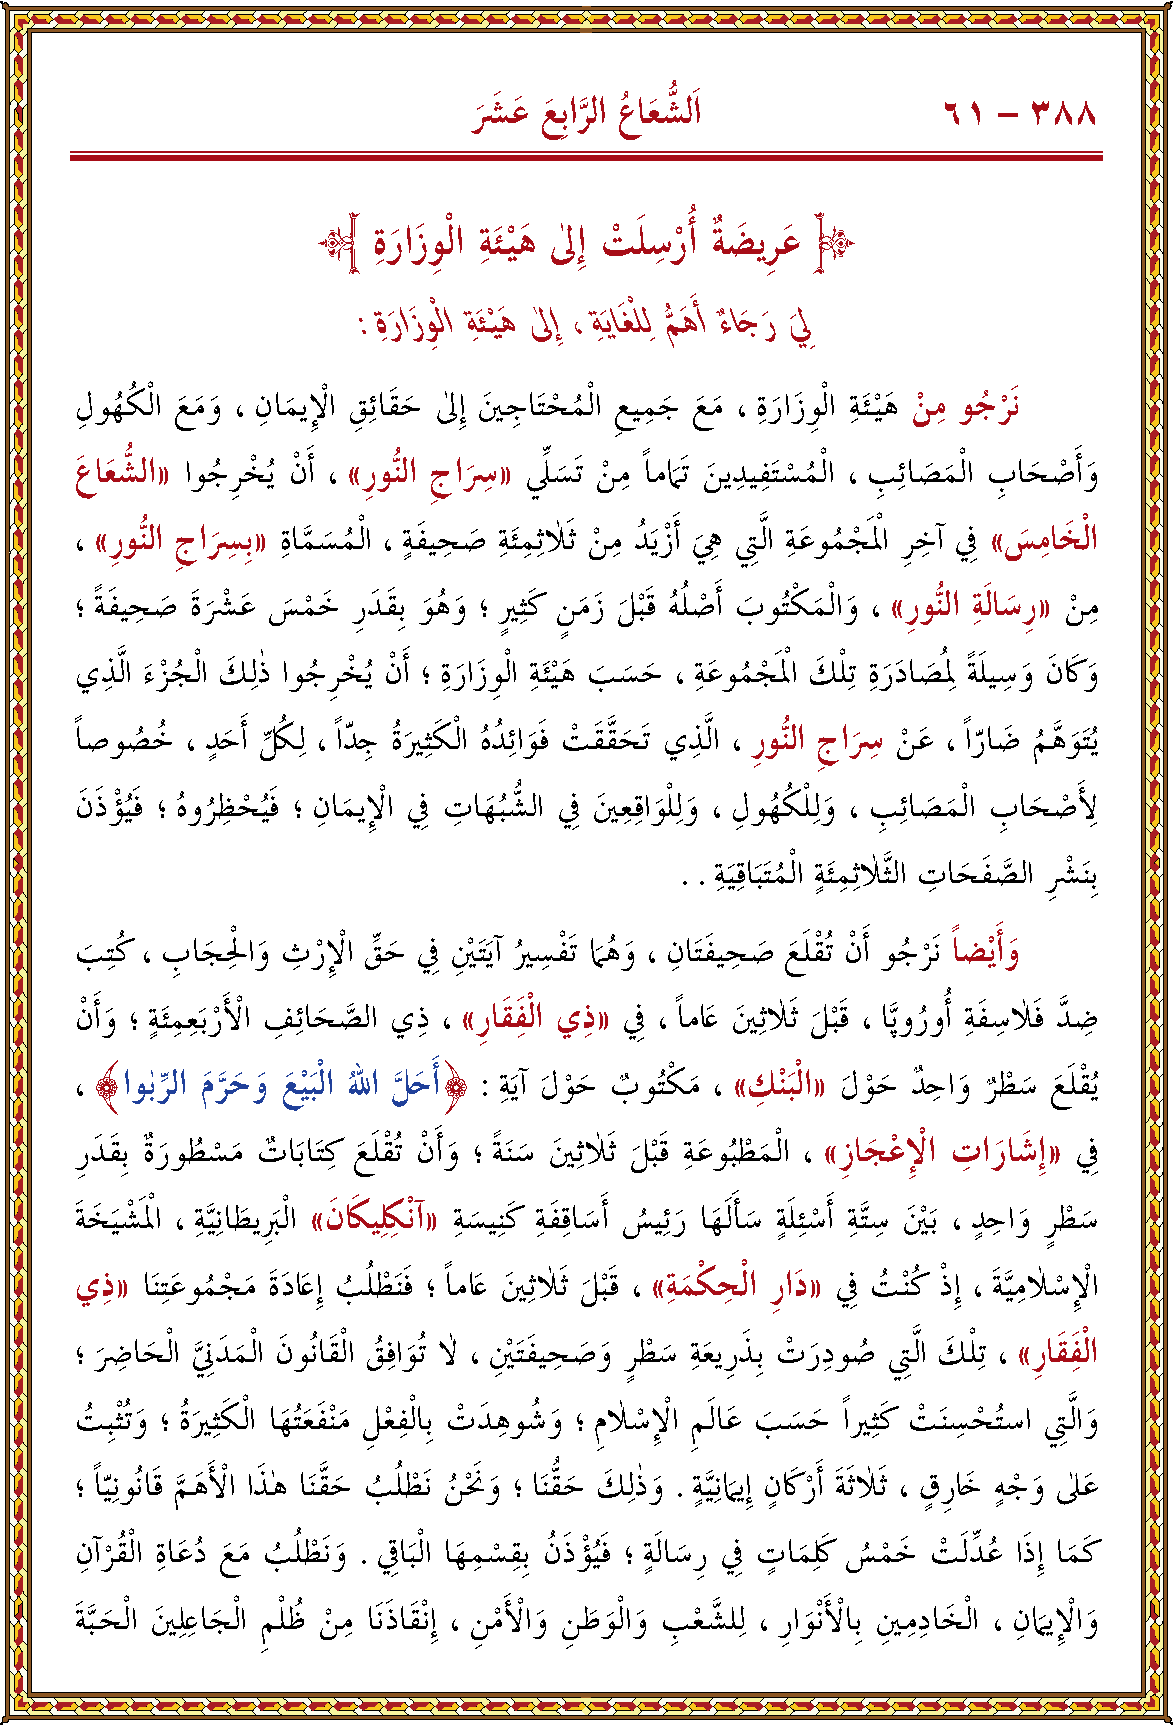 ٣٨٨ – ٦١ اَلشُّعَاعُ الرَّابِعَ عَشَرَ
عَرِيضَةٌ أُرْسِلَتْ إِلٰى هَيْئَةِ الْوِزَارَةِ
لِيَ رَجَاءٌ أَهَمُّ لِلْغَايَةِ ، إِلٰى هَيْئَةِ الْوِزَارَةِ :
نَرْجُو مِنْ هَيْئَةِ الْوِزَارَةِ ، مَعَ جَمِيعِ الْمُحْتَاجِينَ إِلٰى حَقَائِقِ الْإِيمَانِ ، وَمَعَ الْكُهُولِ
وَأَصْحَابِ الْمَصَائِبِ ، الْمُسْتَفِيدِينَ تَمَاماً مِنْ تَسَلِّي «سِرَاجِ النُّورِ» ، أَنْ يُخْرِجُوا «الشُّعَاعَ
الْخَامِسَ» فِي آخِرِ الْمَجْمُوعَةِ الَّتِي هِيَ أَزْيَدُ مِنْ ثَلٰاثِمِئَةِ صَحِيفَةٍ ، الْمُسَمَّاةِ «بِسِرَاجِ النُّورِ» ،
مِنْ «رِسَالَةِ النُّورِ» ، وَالْمَكْتُوبَ أَصْلُهُ قَبْلَ زَمَنٍ كَثِيرٍ ؛ وَهُوَ بِقَدَرِ خَمْسَ عَشْرَةَ صَحِيفَةً ؛
وَكَانَ وَسِيلَةً لِمُصَادَرَةِ تِلْكَ الْمَجْمُوعَةِ ، حَسَبَ هَيْئَةِ الْوِزَارَةِ ؛ أَنْ يُخْرِجُوا ذٰلِكَ الْجُزْءَ الَّذِي
يُتَوَهَّمُ ضَارّاً ، عَنْ سِرَاجِ النُّورِ ، الَّذِي تَحَقَّقَتْ فَوَائِدُهُ الْكَثِيرَةُ جِدّاً ، لِكُلِّ أَحَدٍ ، خُصُوصاً
لِأَصْحَابِ الْمَصَائِبِ ، وَلِلْكُهُولِ ، وَلِلْوَاقِعِينَ فِي الشُّبُهَاتِ فِي الْإِيمَانِ ؛ فَيُحْظِرُوهُ ؛ فَيُؤْذَنَ
بِنَشْرِ الصَّفَحَاتِ الثَّلٰاثِمِئَةِ الْمُتَبَاقِيَةِ . .
وَأَيْضاً نَرْجُو أَنْ تُقْلَعَ صَحِيفَتَانِ ، وَهُمَا تَفْسِيرُ آيَتَيْنِ فِي حَقِّ الْإِرْثِ وَالْحِجَابِ ، كُتِبَ
ضِدَّ فَلٰاسِفَةِ أُورُوپَّا ، قَبْلَ ثَلٰاثِينَ عَاماً ، فِي «ذِي الْفَقَارِ» ، ذِي الصَّحَائِفِ الْأَرْبَعِمِئَةِ ؛ وَأَنْ
يُقْلَعَ سَطْرٌ وَاحِدٌ حَوْلَ «الْبَنْكِ» ، مَكْتُوبٌ حَوْلَ آيَةِ : ﴿أَحَلَّ اللهُ الْبَيْعَ وَحَرَّمَ الرِّبٰوا﴾ ،
فِي «إِشَارَاتِ الْإِعْجَازِ» ، الْمَطْبُوعَةِ قَبْلَ ثَلٰاثِينَ سَنَةً ؛ وَأَنْ تُقْلَعَ كِتَابَاتٌ مَسْطُورَةٌ بِقَدَرِ
سَطْرٍ وَاحِدٍ ، بَيْنَ سِتَّةِ أَسْئِلَةٍ سَأَلَهَا رَئِيسُ أَسَاقِفَةِ كَنِيسَةِ «آنْكِلِيكَانَ» الْبَرِيطَانِيَّةِ ، الْمَشْيَخَةَ
الْإِسْلٰامِيَّةَ ، إِذْ كُنْتُ فِي «دَارِ الْحِكْمَةِ» ، قَبْلَ ثَلٰاثِينَ عَاماً ؛ فَنَطْلُبُ إِعَادَةَ مَجْمُوعَتِنَا «ذِي
الْفَقَارِ» ، تِلْكَ الَّتِي صُودِرَتْ بِذَرِيعَةِ سَطْرٍ وَصَحِيفَتَيْنِ ، لٰا تُوَافِقُ الْقَانُونَ الْمَدَنِيَّ الْحَاضِرَ ؛
وَالَّتِي اسْتُحْسِنَتْ كَثِيراً حَسَبَ عَالَمِ الْإِسْلٰامِ ؛ وَشُوهِدَتْ بِالْفِعْلِ مَنْفَعَتُهَا الْكَثِيرَةُ ؛ وَتُثْبِتُ
عَلٰى وَجْهٍ خَارِقٍ ، ثَلٰاثَةَ أَرْكَانٍ إِيمَانِيَّةٍ . وَذٰلِكَ حَقُّنَا ؛ وَنَحْنُ نَطْلُبُ حَقَّنَا هٰذَا الْأَهَمَّ قَانُونِيّاً ؛
كَمَا إِذَا عُدِّلَتْ خَمْسُ كَلِمَاتٍ فِي رِسَالَةٍ ؛ فَيُؤْذَنُ بِقِسْمِهَا الْبَاقِي . وَنَطْلُبُ مَعَ دُعَاةِ الْقُرْآنِ
وَالْإِيمَانِ ، الْخَادِمِينِ بِالْأَنْوَارِ ، لِلشَّعْبِ وَالْوَطَنِ وَالْأَمْنِ ، إِنْقَاذَنَا مِنْ ظُلْمِ الْجَاعِلِينَ الْحَبَّةَ